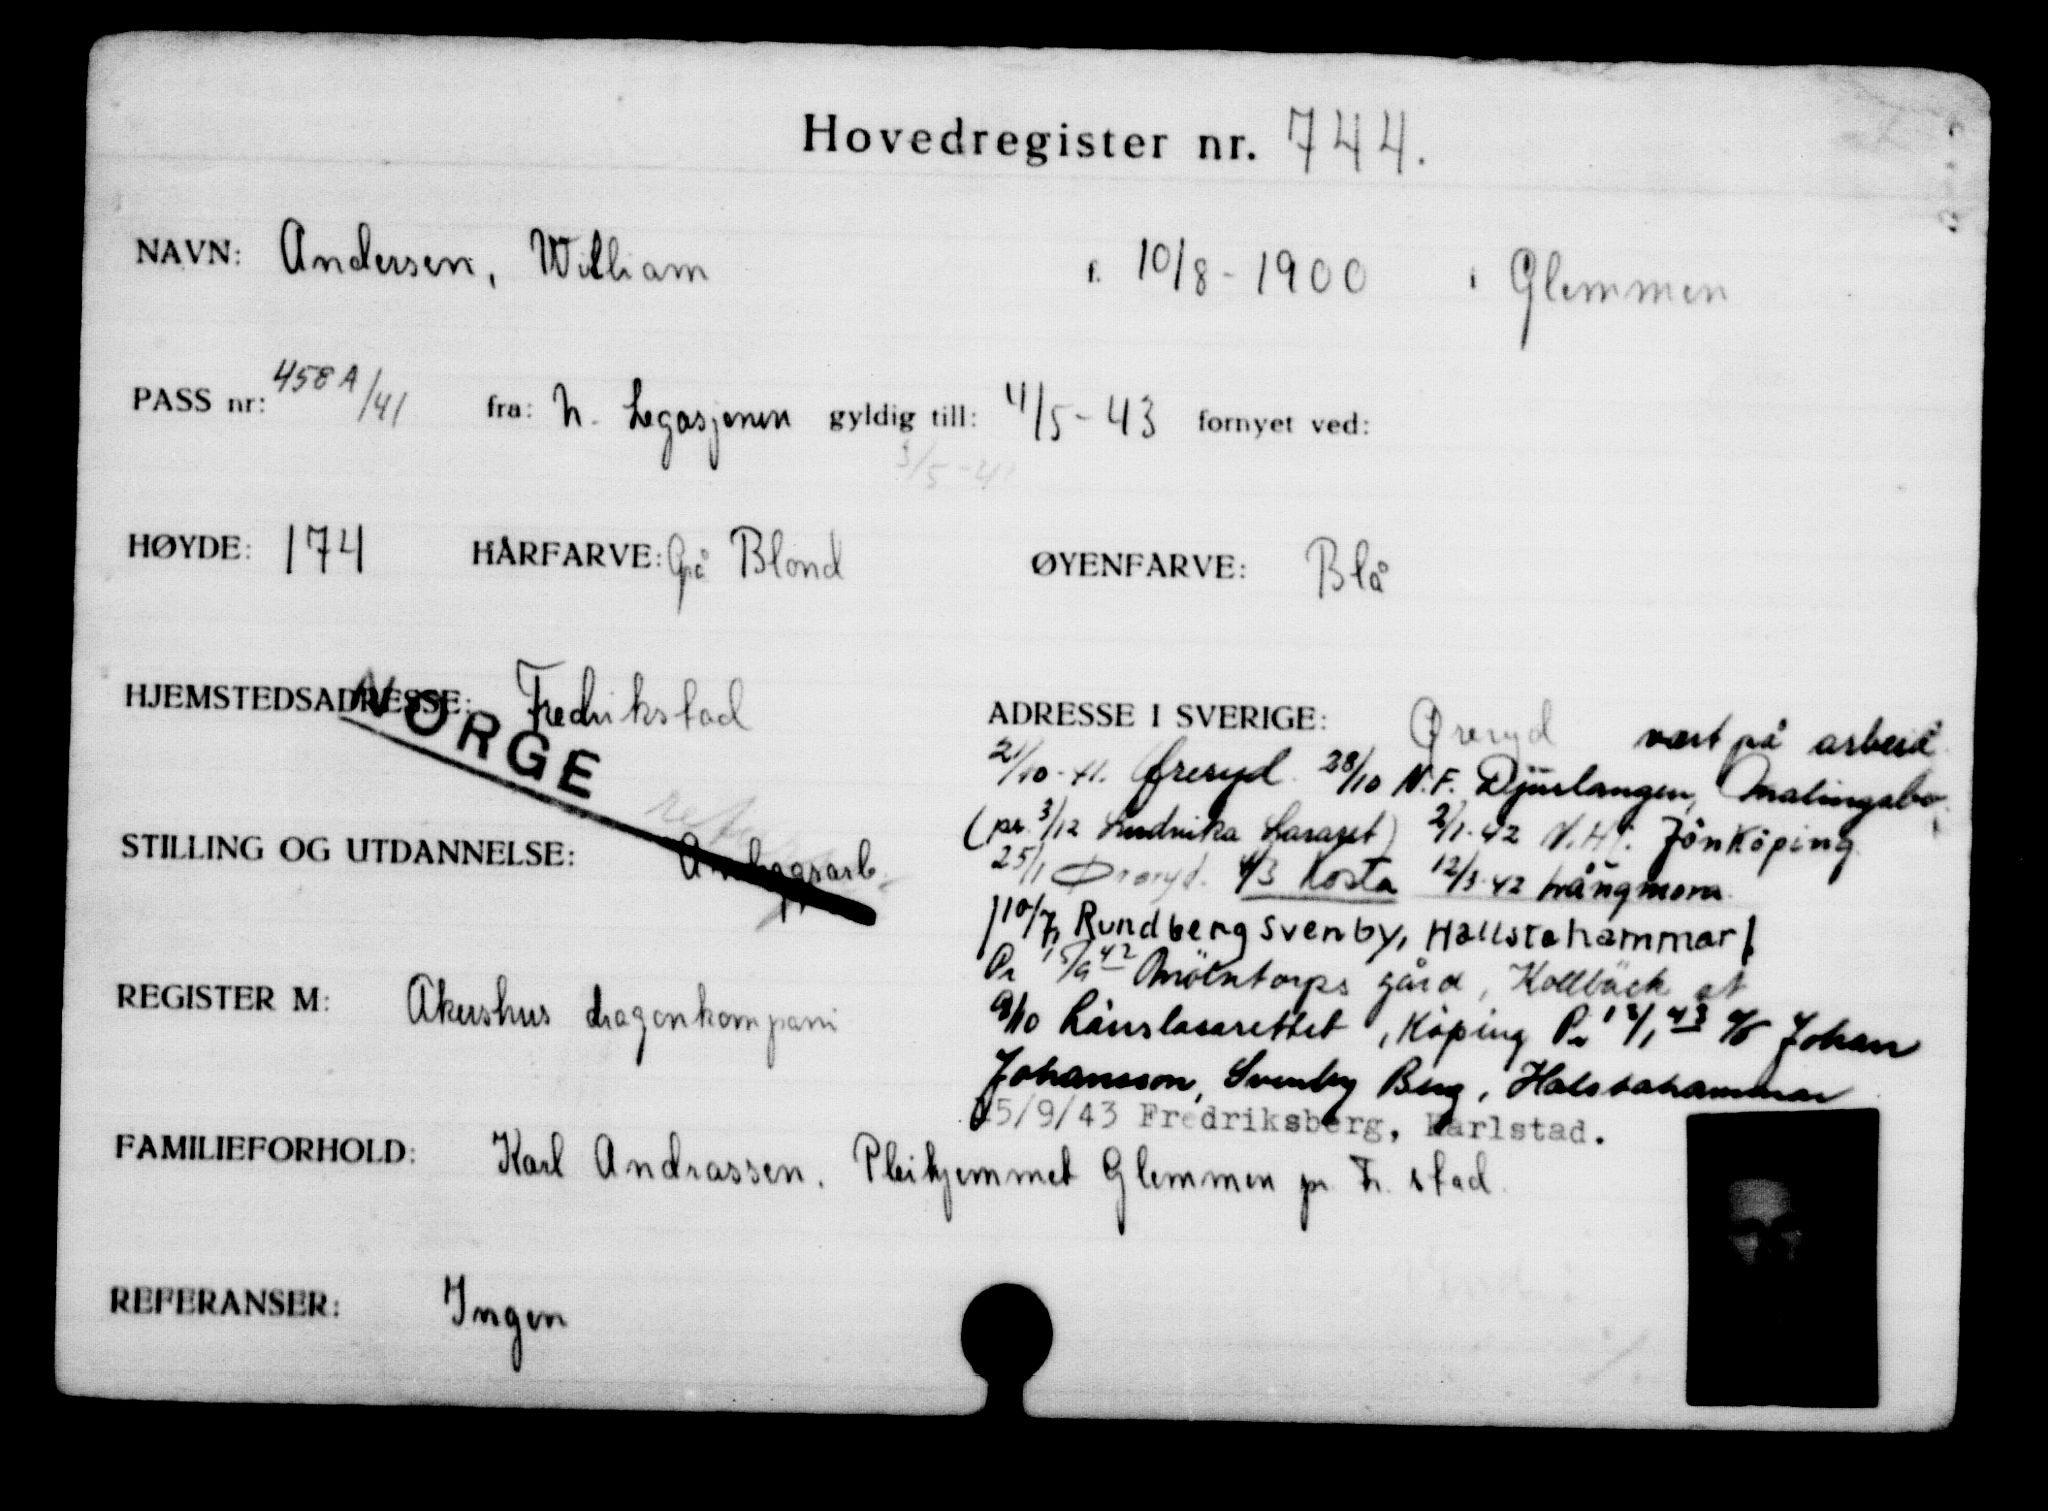 Hovedregister nr. 744.
NAVN: Andersen, William f. 10/8-1900 i Glemmen
PASS nr: 458A/41 fra: N. Legasjonen gyldig till: 4/5-43 fornyet ved:
3/5-4
HØYDE: 174 HÅRFARVE: Grå Blond ØYENFARVE: Blå
HJEMSTEDSADRESSE: Fredrikstad
NORGE
ADRESSE I SVERIGE: Øreryd vært på arbeid
21/10-41. Øreryd. 28/10 N.F. Djurlangen, Malingsbo.
(pr. 3/12 Ludvika Lasaret) 2/1-42 N.H. Jönköping
25/1 Øreryd. 4/3 Kosta 12/3-42 Långmora
STILLING OG UTDANNELSE: Anleggsarb.
/10/7, Rundberg Svenby, Hallstahammar/.
Pr 15/9 42 Mölntorps gård, Kollbäck st
REGISTER M: Akershus dragonkompani
9/10 Länslasarettet, Köping Pr 13/1 43 c/o Johan
Johansson, Svenby Berg, Halstahammar
15/9/43 Fredriksberg, Karlstad.
FAMILIEFORHOLD: Karl Andrassen. Pleihjemmet Glemmen pr. Fr. stad.
REFERANSER: Ingen